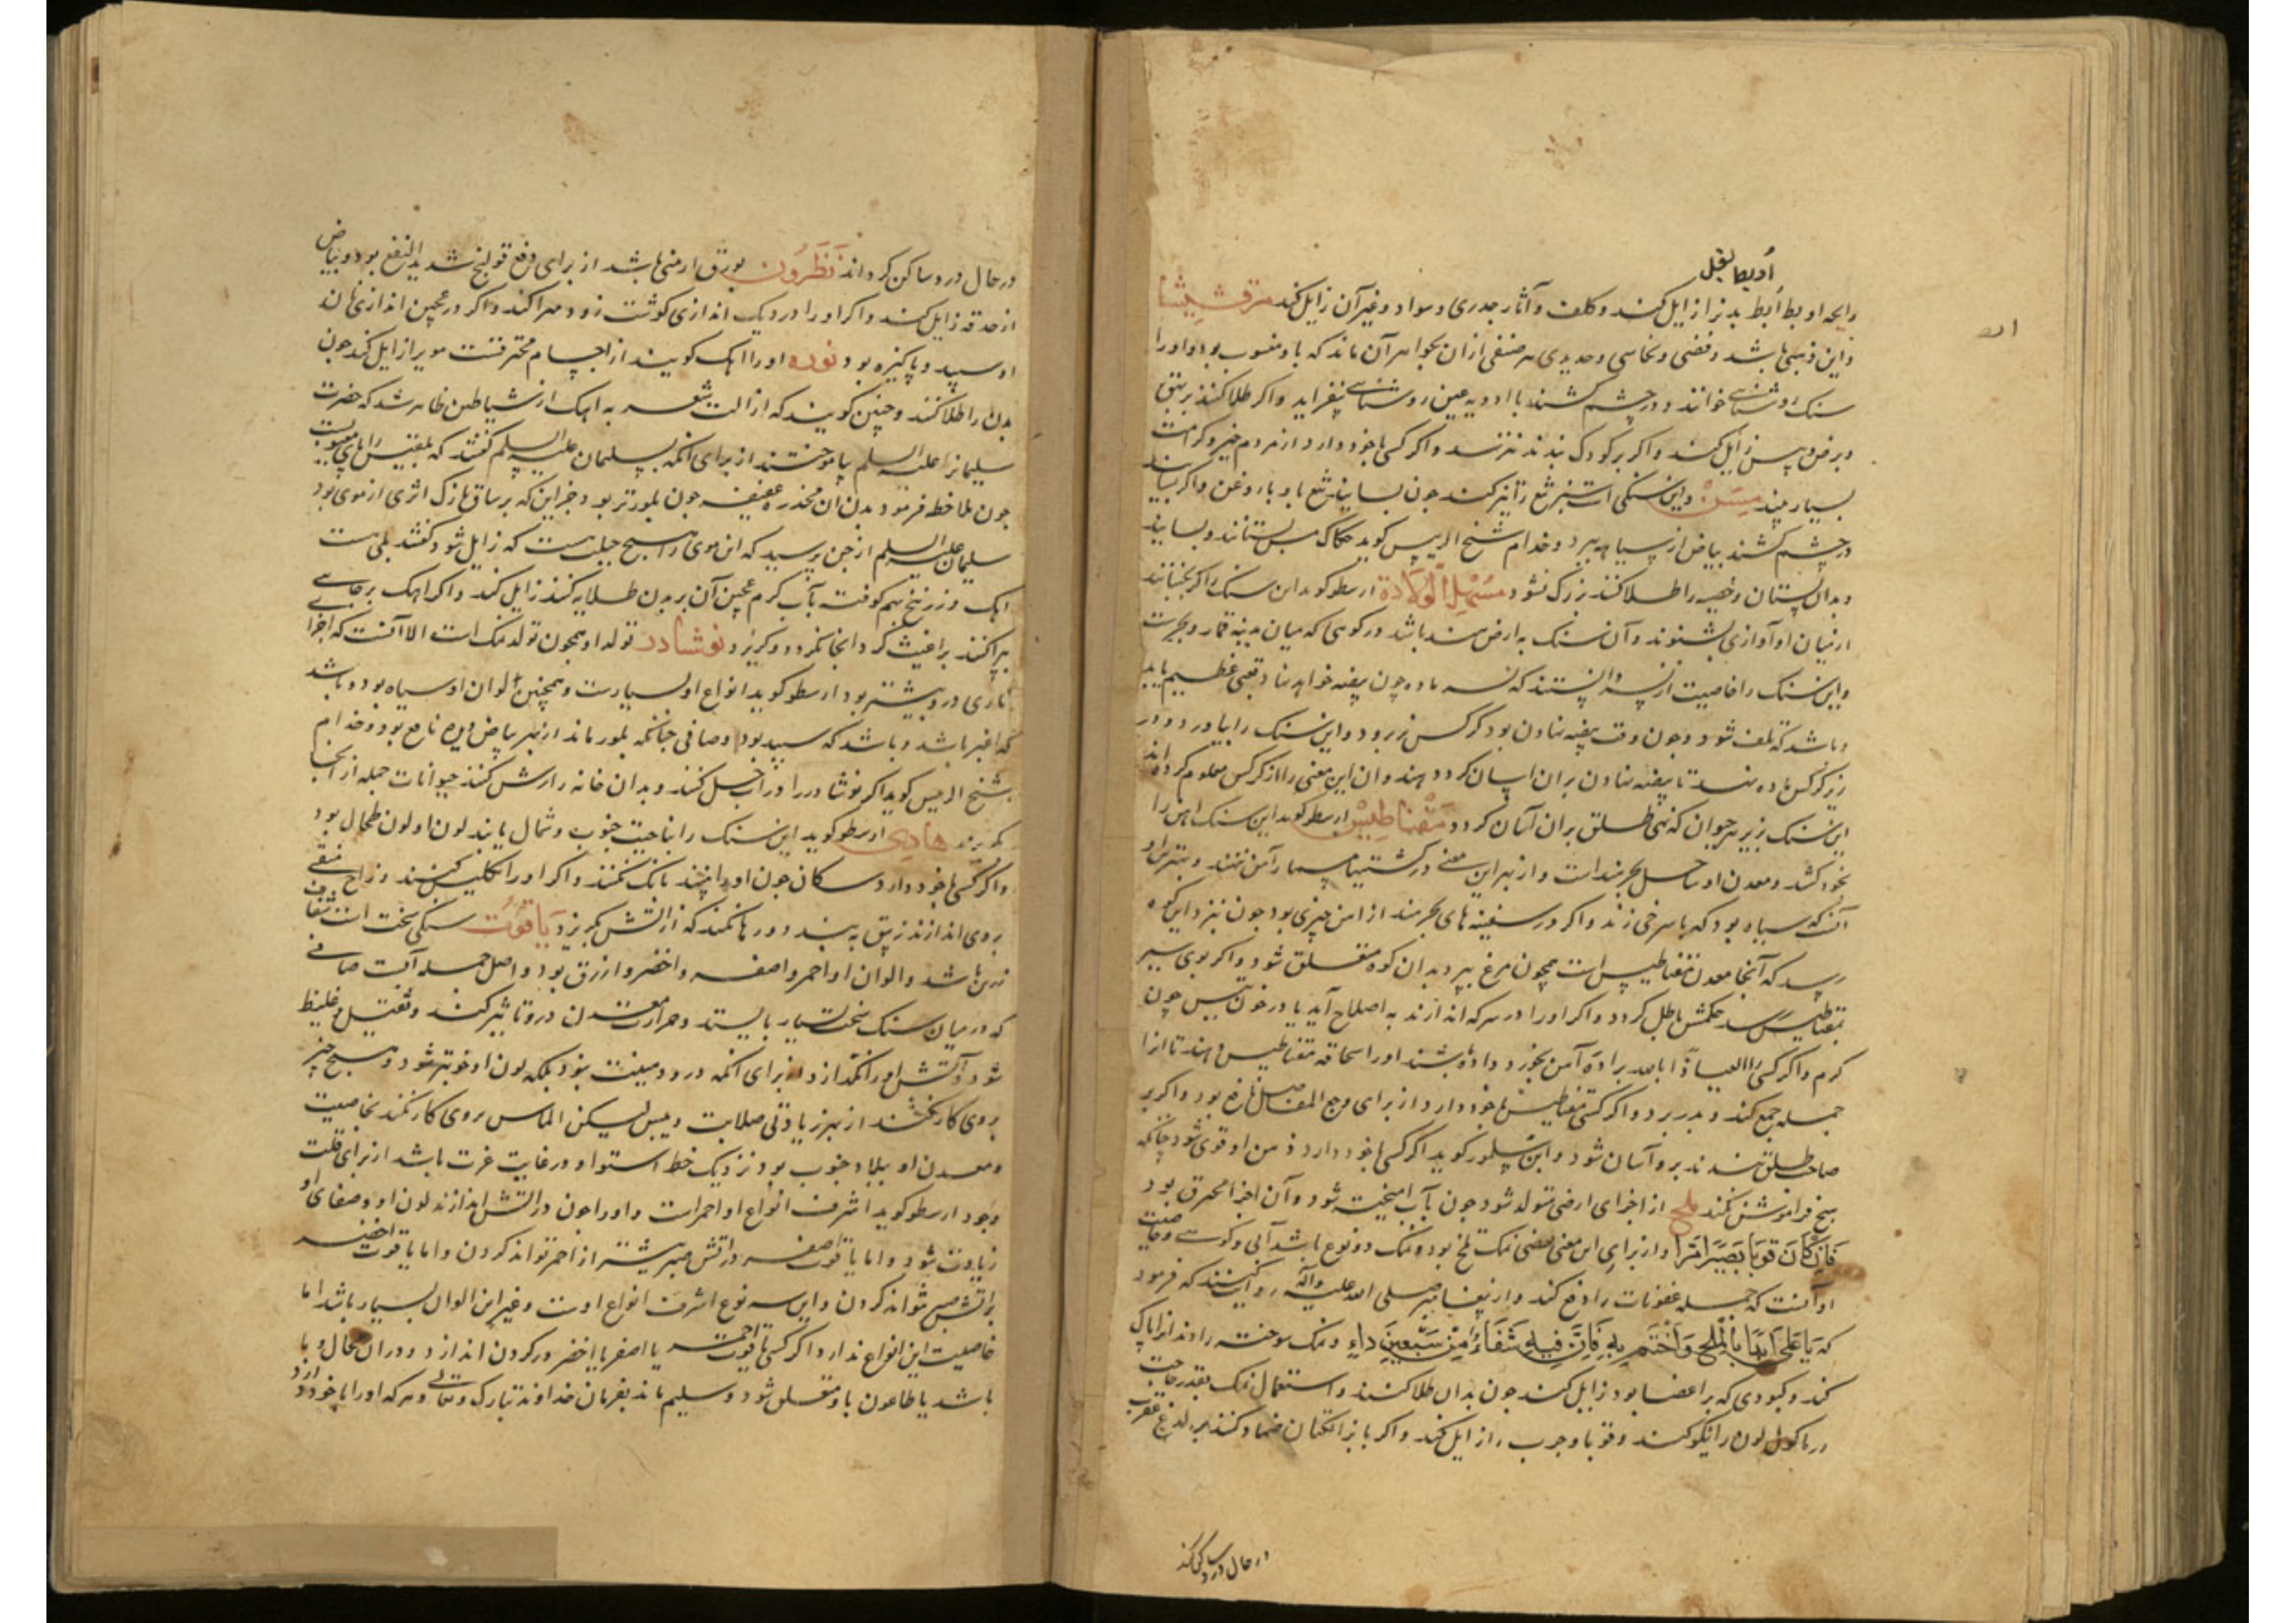 اُو بط بغل
ورایحه او بط اُبط بد نیز از ایل کند و کلف و آثار جدری و سواد و غیر آن زایل کند مرقشیشا
و این ذهبی باشد و فضی و نحاسی و حدیدی هر صنفی ازان بجواهر آن ماند که باو منسوب بود و او را
سنک روشنایی خوانند و در چشم کشند با ادویه عین روشنایی بیفزاید و اگر طلا کنند بر بهق
و برص و پس زایل کند و اگر بر کودک بندند نترسد و اگر کسی با خود دارد از مردم خیر و کرامت
بسیار بیند مِسَنّ و این سنکی است تیز
در چشم کشند بیاض از سیاهه ببرد و خدام شیخ الرییس کوید حکاک مسن بستانند و بسایند
و بدان پستان و خصیه را طلا کنند بزرک نشود مسهل الولادة ارسطو کوید این سنک را کر بجنبانند
از میان او آوازی بشنوند و آن سنک به ارض هند باشد در کوهی که میان مدینه قمار و بحر است
و این سنک را خاصیت از نسر دانستند که نسر ماده چون بیضه خواهد نهاد تعبی عظیم یابد
و باشد که تلف شود و چون وقت بیضه نهادن بود کرکس نر برود و این سنک را بیاورد و در
زیر کرکس ماده نهد تا بیضه نهادن بران اسان کردد و هندوان این معنی را از کرکس معلوم کرده‌اند
این سنک زیر هر حیوان که نهی طلق بران آسان کردد مقناطیس ارسطو کوید این سنک اهن را
بخود کشد و معدن او ساحل بحر هند است و از بهر این معنی در کشتیها مسمار آهن نزنند و بهترین او
آنست که سیاه بود که با سرخی زند و اگر در سفینه های بحر هند از اهن چیزی بود چون نزد این کوه
رسد که آنجا معدن مقناطیس است همچون مرغ بپرد بدان کوه متعلق شود و اگر بوی سیر
بمقناطیس رسد حکمش باطل کردد و اگر او را در سرکه اندازند به اصلاح آید یا در خون تیس چون
کرم و اگر کسی را العیاذ بالله براده آهن بخورد داده باشند او را سحاقه مقناطیس دهند تا انرا
جمله جمع کند و بدر برد و اگر کسی مقناطیس با خود دارد از برای وجع المفاصل نافع بود و اگر بر
صاحب طلق بندند برو آسان شود و ابن سلور کوید اگر کسی با خود دارد ذهن او قوی شود چنانکه
هیچ فراموش نکند ملح از اجزای ارضی تولد شود چون بآب امیخته شود و آن اجزا محترق بود
فان کان قویا یصیر امرا و از برای این معنی بعضی نمک تلخ بود و نمک دو نوع باشد آبی و کوهی و خاصیت
او آنست که جمله عفونات را دفع کند و از پیغامبر صلی الله علیه و آله روایت کنند که فرمود
که یا علی ابدا بالملح و اختم به فان فیه شفاء من سبعین داء و نمک سوخته دندانرا پاک
کند و کبودی که بر اعضا بود زایل کند چون بدان طلا کنند و استعمال نمک بقدر حاجت
در ماکول لون را نیکو کند و قوبا و جرب را زایل کند و اگر با بزر الکتان ضماد کنند بر لدغ عقرب
در حال درد ساکن کند
در حال درد ساکن کرداند نَطْرُون بورق ارمنی باشد از برای دفع قولنج شدید النفع بود و بیاض
از حدقه زایل کند و اگر او را در دیک اندازی کوشت زود مهرا کند و اگر در عجین اندازی نان
او سپید و پاکیزه بود نوره او را اهک کویند از اجسام محترقست موی را زایل کند چون
بدن را طلا کنند و چنین کویند که ازالت شعر به اهک از شیاطین ظاهر شد که حضرت
سلیمانرا علیه السلم بیاموختند از برای انکه بسلیمان علیه السلم کفتند که بلقیس را پای معیوبست
چون ملاحظه فرمود بدن ان مخدره عفیفه چون بلور تر بود جز این که بر ساق نازک اثری از موی بود
سلیمان علیه السلم از جن پرسید که این موی را هیچ حیلت هست که زایل شود کفتند بلی هست
اهک و زرنیخ بهم کوفته بآب کرم عجین آن بر بدن طلایه کنند زایل کند و اگر اهک بر جایی
بپراکنند براغیث کرد انجا نکردد و کریزد نوشادر تولد او همچون تولد نمک است الا آنست که اجزا
ناری درو بیشتر بود ارسطو کوید انواع او بسیارست و همچنین الوان او سیاه بود و باشد
که اغبر باشد و باشد که سپید بود و صافی چنانکه بلور ماند از بهر بیاض دیده نافع بود و خدام
شیخ الرییس کوید اگر نوشادر را در آب حل کنند و بدان خانه را رش کنند حیوانات جمله از آنجا
بکریزند هادی ارسطو کوید این سنک را بناحیت جنوب و شمال یابند لون او لون طحال بود
و اگر کسی با خود دارد سکان چون او را بینند بانک نکنند و اگر او را تکلیس کنند و زاج سقی
بروی اندازند زیبق ببندد و رها نکند که از اتش بکریزد یاقوت سنکی سخت است شفاف
زرین باشد و الوان او احمر و اصفر و اخضر و ازرق بود و اصل جمله آبست صافی
که در میان سنک سخت بسیار بایستد و حرارت معدن درو تاثیر کند و ثقیل و غلیظ
شود و آتش او را نکدازد از برای انکه درو دهنیت نبود بلکه لون او خوبتر شود و هیچ چیز
بروی کار نکند از بهر زیادتی صلابت و یبس لیکن الماس بروی کار کند بخاصیت
و معدن او ببلاد جنوب بود نزدیک خط استوا و در غایت عزت باشد از برای قلت
وجود ارسطو کوید اشرف انواع او احمر است و او را چون در اتش اندازند لون او و صفای او
زیادت شود و اما یاقوت اصفر در اتش صبر بیشتر از احمر تواند کردن و اما یاقوت اخضر
بر اتش صبر نتواند کردن و این سه نوع اشرف انواع اوست و غیر این الوان بسیار باشد اما
خاصیت این انواع ندارد و اگر کسی یاقوت احمر یا اصفر یا اخضر در کردن اندازد و در ان محال وبا
باشد یا طاعون باو متعلق نشود و سلیم ماند بفرمان خداوند تبارک و تعالی و هر که او را با خود دارد